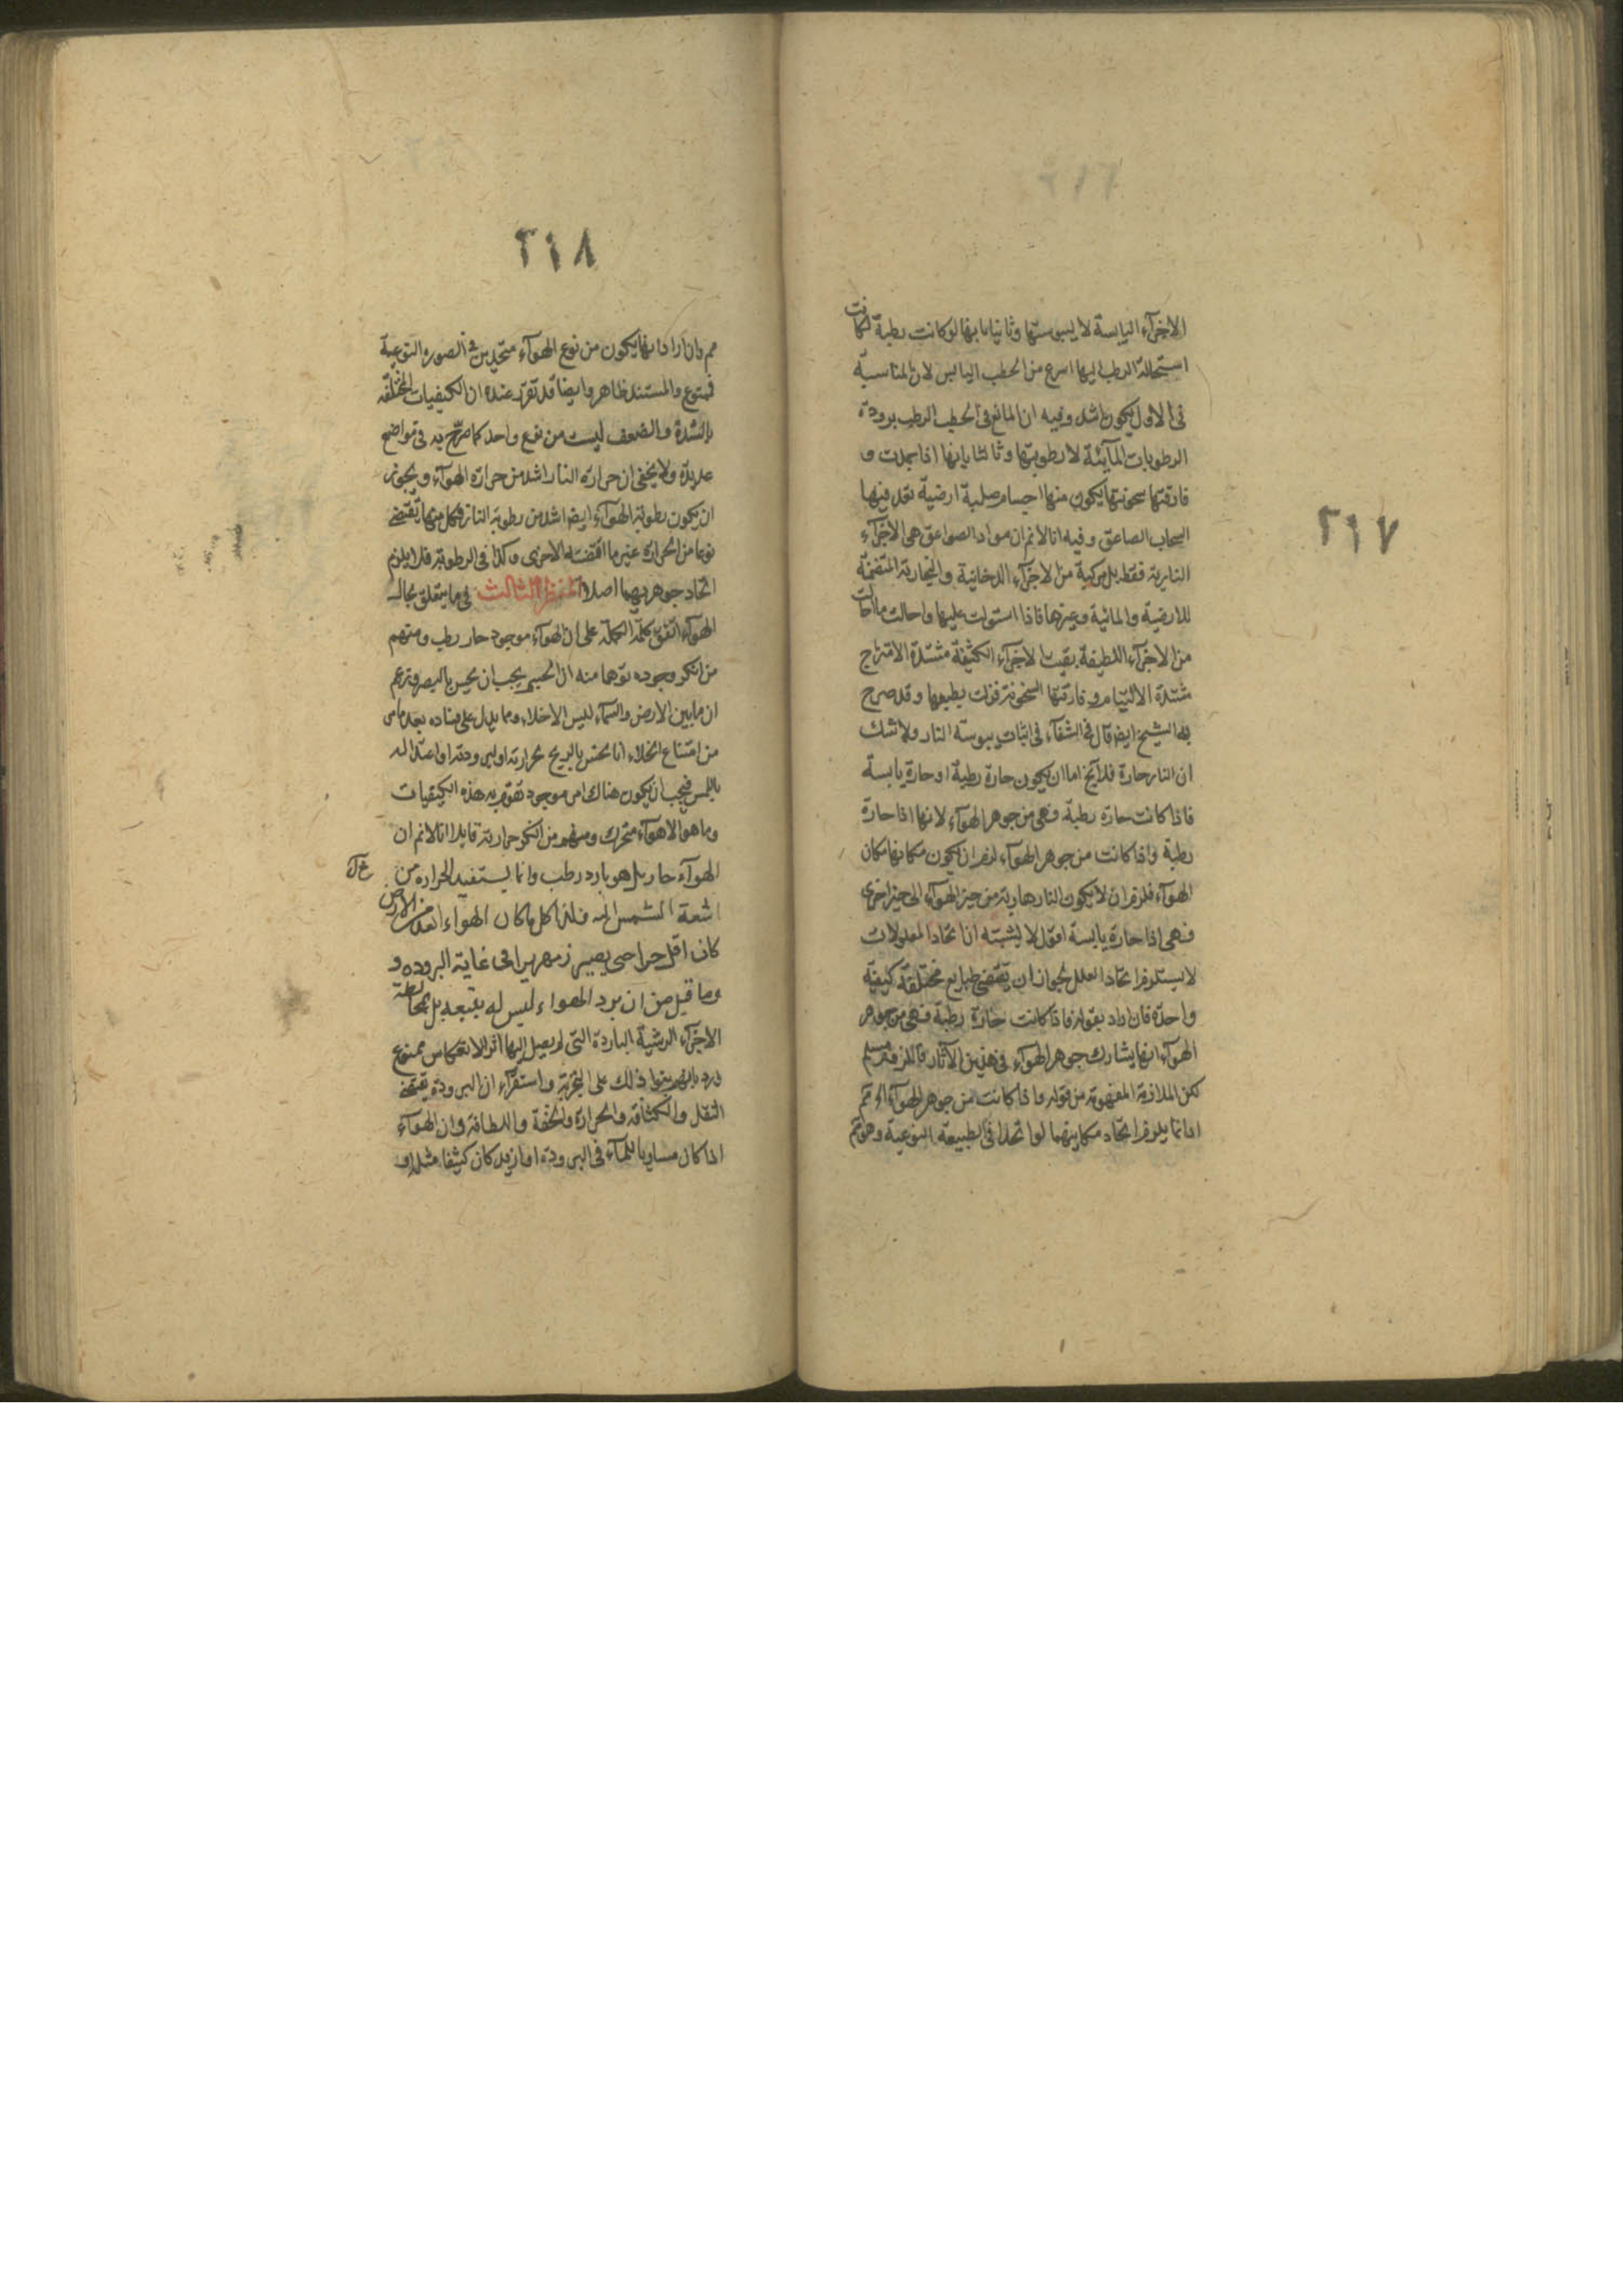 ٢١٧
الاجزآء اليابسة لا يبوستها وثانيا بانها لو كانت رطبة لكانت
استحالة الرطب اليها اسرع من الحطب اليابس لان المناسبة
فى الاول يكون اشد وفيه ان المانع فى الحطب الرطب برودة
الرطوبات المآئية لا رطوبتها وثالثا بانها اذا خمدت و
فارقتها سخونتها يكون منها اجسام صلبة ارضية تقذفيها
السحاب الصاعق وفيه انا لانم ان مواد الصواعق هى الاجزآء
النارية فقط بل مركبة من الاجزآء الدخانية والبخارية المتضمنة
للارضية والمائية وغيرها فاذا استولت عليها واحالت ما احالت
من الاجزآء اللطيفة بقيت الاجزآء الكثيفة مشتدة الامتزاج
شتدة الالتيام وفارقتها السخونة فنزلت بطبعها وقد صرح
به الشيخ ايضا قال فى الشفآء فى اثبات يبوسة النار ولا شك
ان النار حارة فلا يخ اما ان يكون حارة رطبة او حارة يابسة
فاذا كانت حارة رطبة فهى من جوهر الهوآء لانها اذا حارة
رطبة واذا كانت من جوهر الهوآء لزم ان يكون مكانها مكان
الهوآء فلزم ان لا يكون النار هاربة من حيز الهوآء الى حيز اخرى
فهى اذا حارة يابسة اقول لا يشبته ان اتحاد المعلولات
لا يستلزم اتحاد العلل لجواز ان يقتضى طبايع مختلفة كيفية
واحدة فان اراد بقوله فاذا كانت حارة رطبة فهى من جوهر
الهوآء انها يشارك جوهر الهوآء فى هذين الآثار فاللزوم مسلم
لكن الملازمة المفهومة من قوله واذا كانت من جوهر الهوآء اه مم
اذ انما يلزم اتحاد مكانيهما لو اتحدا فى الطبيعة النوعية وهو مم
٢١٨
مم وان اراد انها يكون من نوع الهوآء متحدين فى الصورة النوعية
فممنوع والمستند ظاهر وايضا قد تقرر عنده ان الكيفيات المختلفة
بالشدة والضعف ليست من نوع واحد كما صرّح به فى مواضع
عديدة ولا يخفى ان حرارة النار اشد من حرارة الهوآء ويجوز
ان يكون رطوبة الهوآء ايضا اشد من رطوبة النار فكل منها تقتضى
نوعا من الحرارة غير ما اقتضته الاخرى وكذا فى الرطوبة فلا يلزم
اتحاد جوهريهما اصلا المنظر الثالث فى ما يتعلق بحال
الهوآء اتفق كلمة الجملة على ان الهوآء موجود حار رطب ومنهم
من انكر وجوده توّهما منه ان الجسم يجب ان يحس بالبصر فزعم
ان ما بين الارض والسمآء ليس الا خلاء ومما يدل على فساده بعد ما مر
من امتناع الخلاء انا نحس بالريح بحرارته او برودته او اعتداله
باللمس فيجب ان يكون هناك امر موجود تقوم به هذه الكيفيات
وما هو الا هوآء متحرك ومنهم من انكر حرارته قايلا انا لانم ان
الهوآء حار بل هو بارد رطب وانما يستفيد الحرارة من
اشعة الشمس اليه فلذا كل ما كان الهواء ابعد من الارض
كان اقل حرا حتى يصير زمهريرا فى غاية البروده و
وما قيل من ان برد الهواء ليس له بتبعه بل بمخالطة
الاجزآء الرشية الباردة التى لم يصل اليها اثر الانعكاس ممنوع
ورد بانهم بنوا ذلك على التجربة واستقرآء ان البرودة يقتضى
الثقل والكثافة والحرارة والخفة واللطافة وان الهوآء
اذا كان مساويا للمآء فى البرودة او ازيد كان كثيفا مثله او